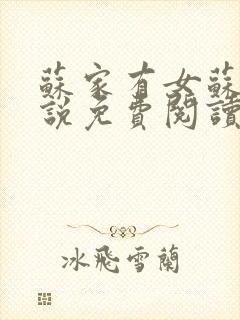 蘇家有女蘇
說免費閱讀
冰飛雪蘭